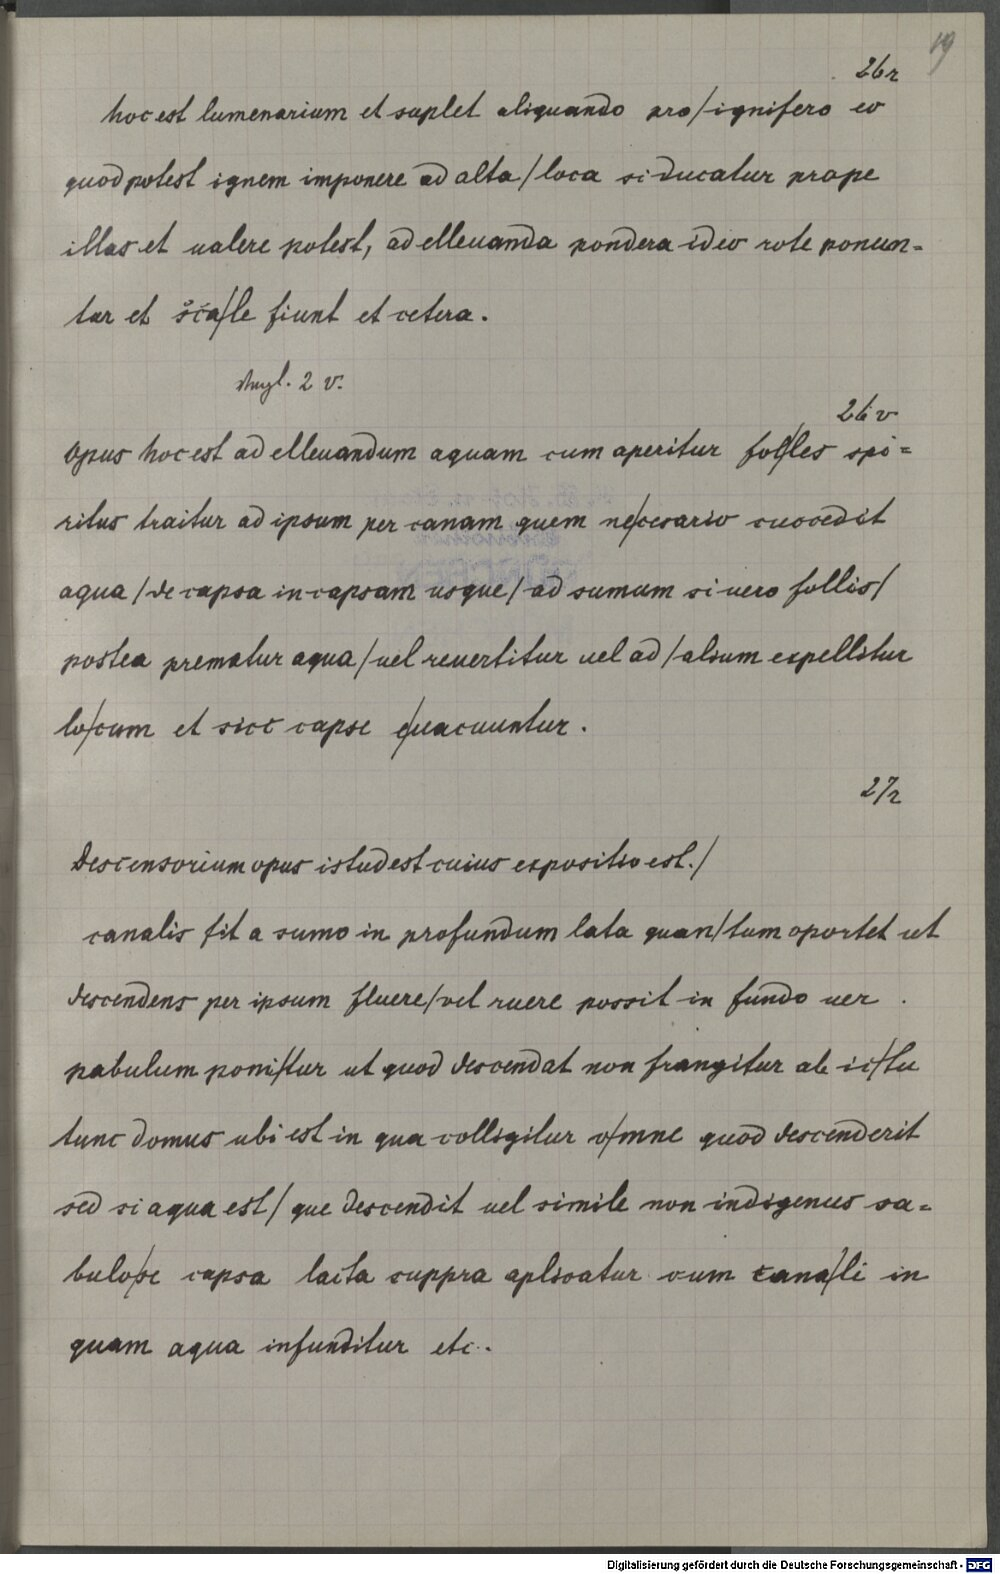 19
26r
hoc est lumenarium et suplet aliquando pro/ignifero eo
quod potest ignem imponere ad alta/loca si ducatur prope
illas et ualere potest, ad elleuanda pondera ideo rote ponun=
tur et sca/le fiunt et cetera.
vingl. 2 v.
26v
Opus hoc est ad elleuandum aquam cum aperitur fol/les spi=
ritus traitur ad ipsum per canam quem ne/cesario succedit
aqua/de capsa in capsam usque/ad sumum si uero follis/
postea prematur aqua/uel reuertitur uel ad/alium expellitur
lo/cum et sicc capse e/uacuuntur.
27r
Descensorium opus istud est cuius expositio est./
canalis fit a sumo in profundum lata quan/tum oportet ut
descendens per ipsum fluere/vel ruere possit in fundo uer .
pabulum poni/tur ut quod descendat non frangitur ab ic/tu
tunc domus ubi est in qua colligitur o/mne quod descenderit
sed si aqua est/que descendit uel simile non indigenus sa=
bulo/se capsa lacta suppra aplicatur cum cana/li in
quam aqua infunditur etc.
Digitalisierung gefördert durch die Deutsche Forschungsgemeinschaft - DFG